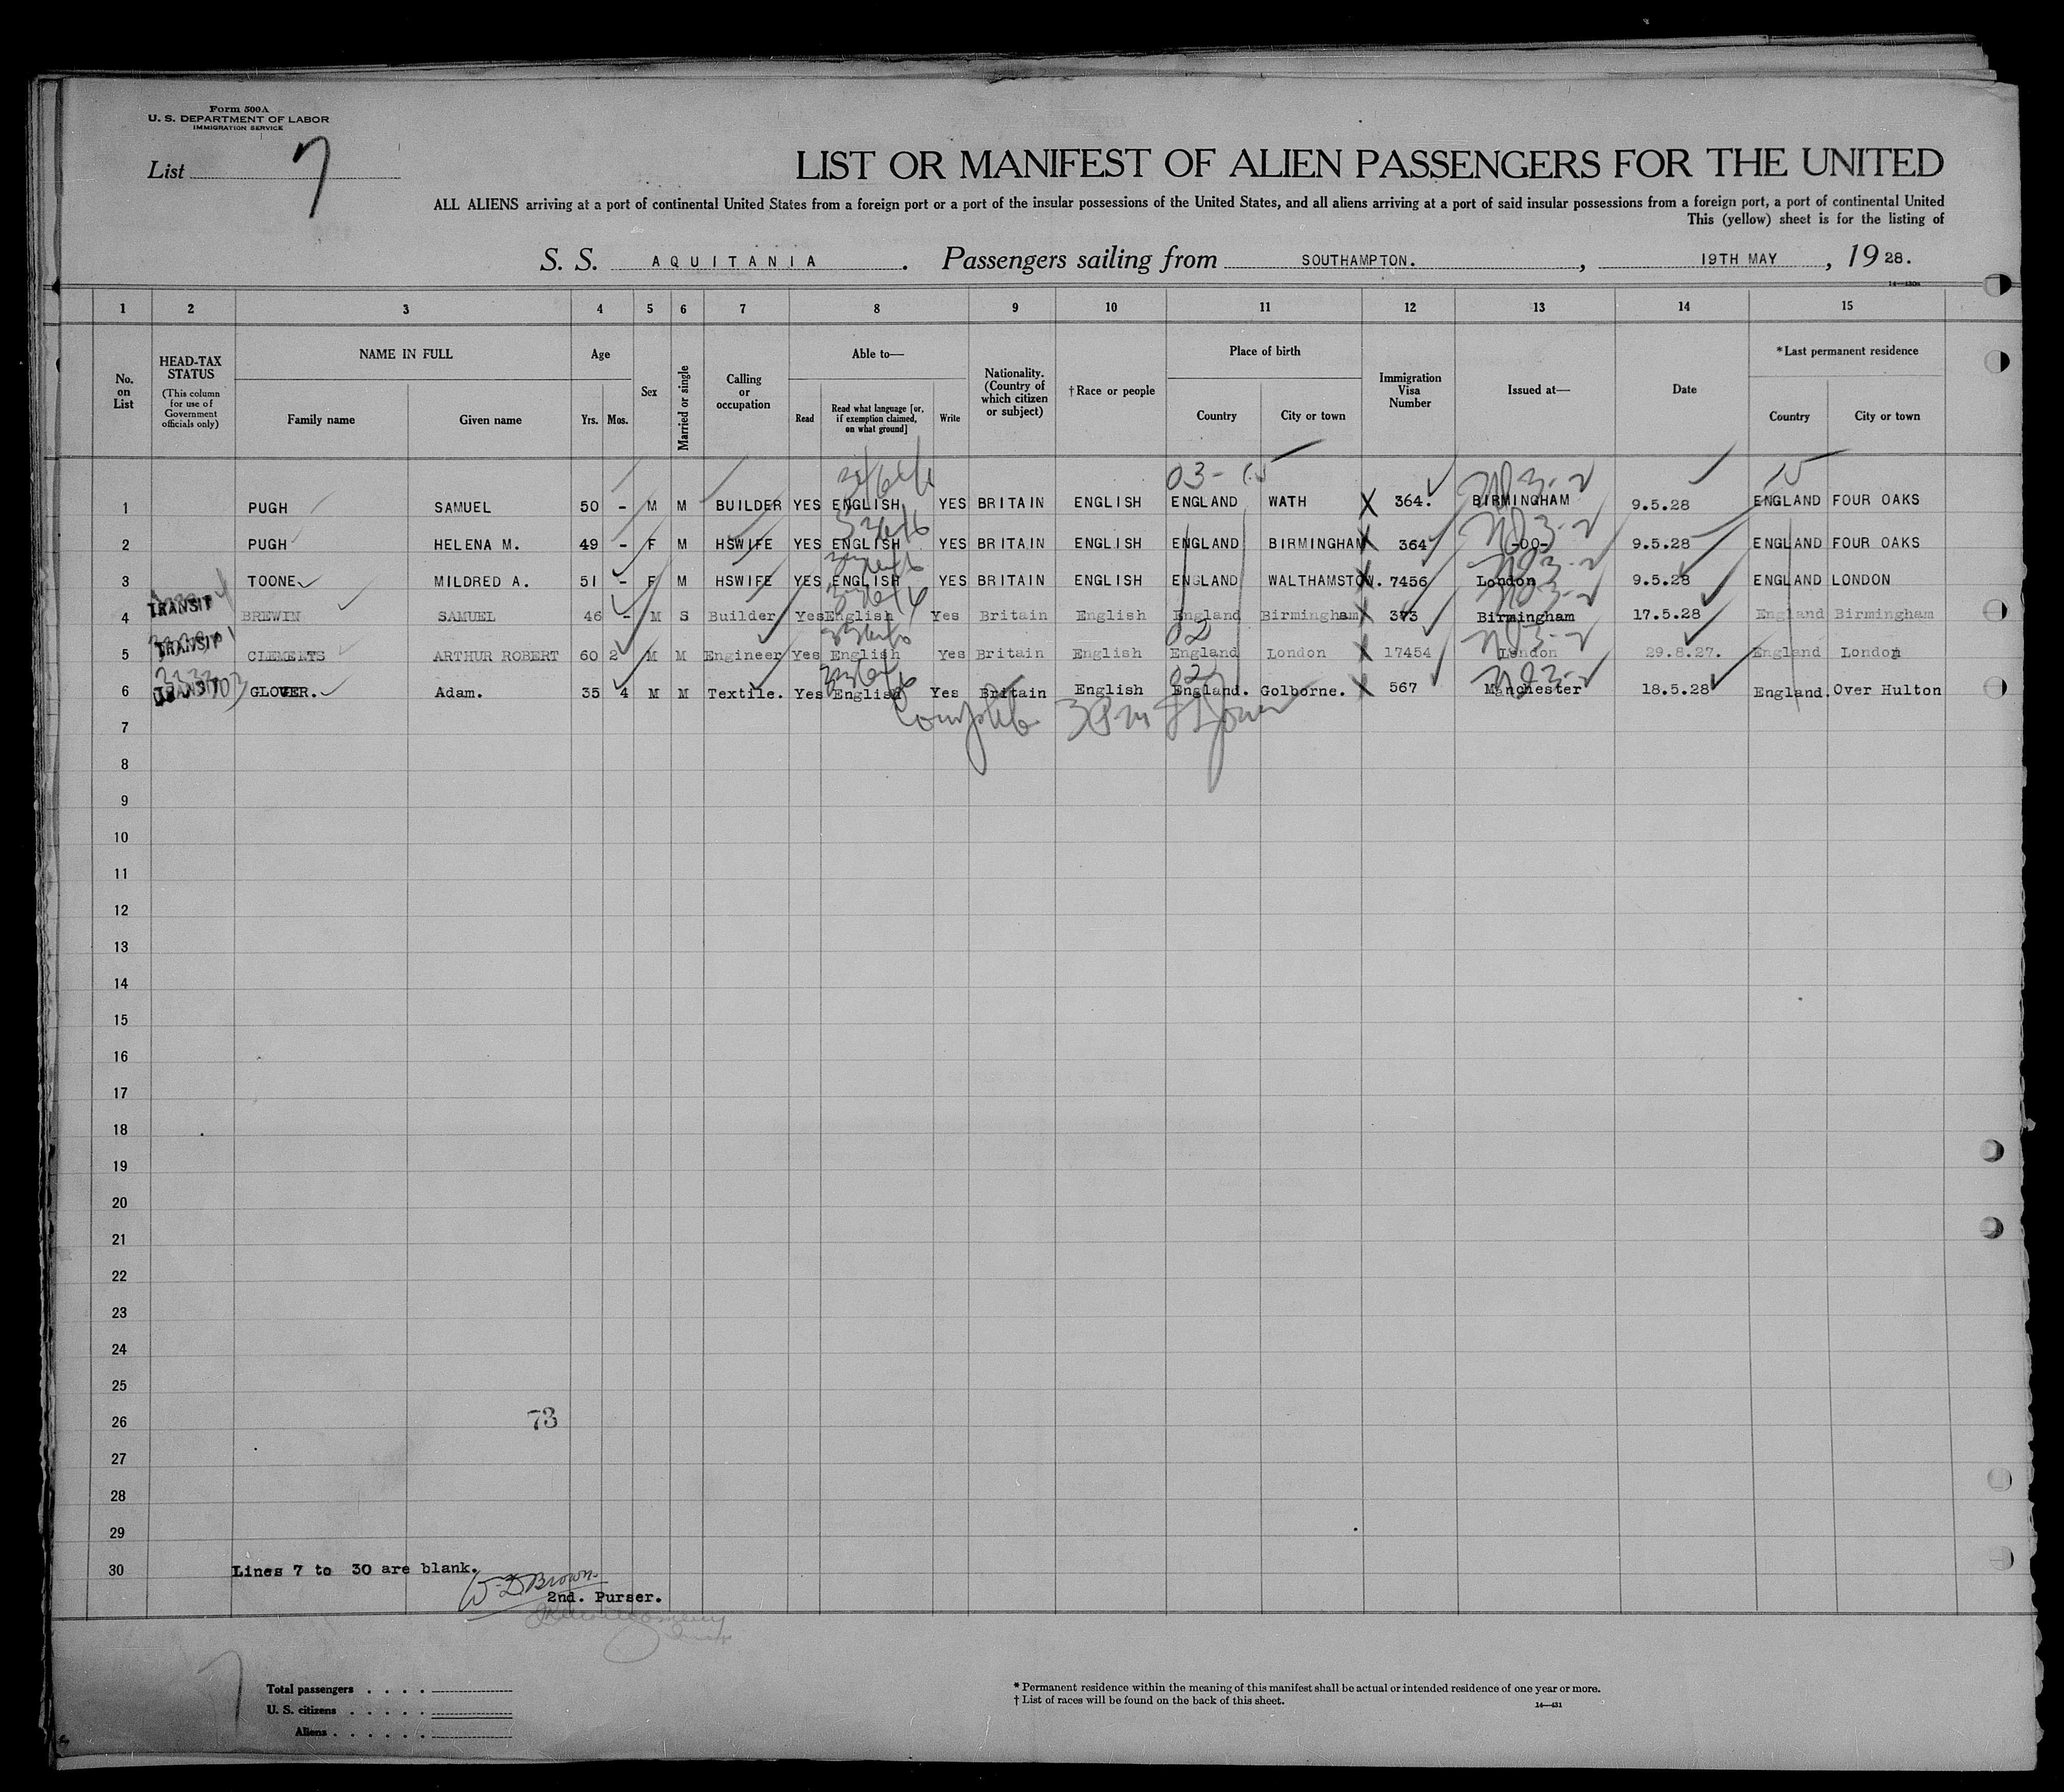 Form 500A
U. S. DEPARTMENT OF LABOR
IMMIGRATION SERVICE
List 7
LIST OR MANIFEST OF ALIEN PASSENGERS FOR THE UNITED
ALL ALIENS arriving at a port of continental United States from a foreign port or a port of the insular possessions of the United States, and all aliens arriving at a port of said insular possessions from a foreign port, a port of continental United
This (yellow) sheet is for the listing of
S. S. AQUITANIA. Passengers sailing from SOUTHAMPTON., 19TH MAY, 1928.
1 2 3 4 5 6 7 8 9 10 11 12 13 14 15
No. on List
HEAD-TAX STATUS (This column for use of Government officials only)
NAME IN FULL
Family name Given name
Age
Yrs. Mos.
Sex
Married or single
Calling or occupation
Able to—
Read Read what language [or, if exemption claimed, on what ground] Write
Nationality. (Country of which citizen or subject)
†Race or people
Place of birth
Country City or town
Immigration Visa Number
Issued at—
Date
*Last permanent residence
Country City or town
03-15 15
1 PUGH SAMUEL 50 - M M BUILDER YES ENGLISH YES BRITAIN ENGLISH ENGLAND WATH X 364. BIRMINGHAM 9.5.28 ENGLAND FOUR OAKS
2 PUGH HELENA M. 49 - F M HSWIFE YES ENGLISH YES BRITAIN ENGLISH ENGLAND BIRMINGHAM X 364 -DO- 9.5.28 ENGLAND FOUR OAKS
3 TOONE MILDRED A. 51 - F M HSWIFE YES ENGLISH YES BRITAIN ENGLISH ENGLAND WALTHAMSTOW. X 7456 London 9.5.28 ENGLAND LONDON
4 TRANSIT BREWIN SAMUEL 46 - M S Builder Yes English Yes Britain English England Birmingham X 373 Birmingham 17.5.28 England Birmingham
02
5 TRANSIT CLEMENTS ARTHUR ROBERT 60 2 M M Engineer Yes English Yes Britain English England London X 17454 London 29.8.27. England London
02
6 TRANSIT GLOVER. Adam. 35 4 M M Textile. Yes English Yes Britain English England. Golborne. X 567 Manchester 18.5.28 England. Over Hulton
7
8
9
10
11
12
13
14
15
16
17
18
19
20
21
22
23
24
25
26 73
27
28
29
30 Lines 7 to 30 are blank.
W. D. Brown.
2nd. Purser.
7
Total passengers . . . .
U. S. citizens . . . . .
Aliens . . . . . .
* Permanent residence within the meaning of this manifest shall be actual or intended residence of one year or more.
† List of races will be found on the back of this sheet.
14—431